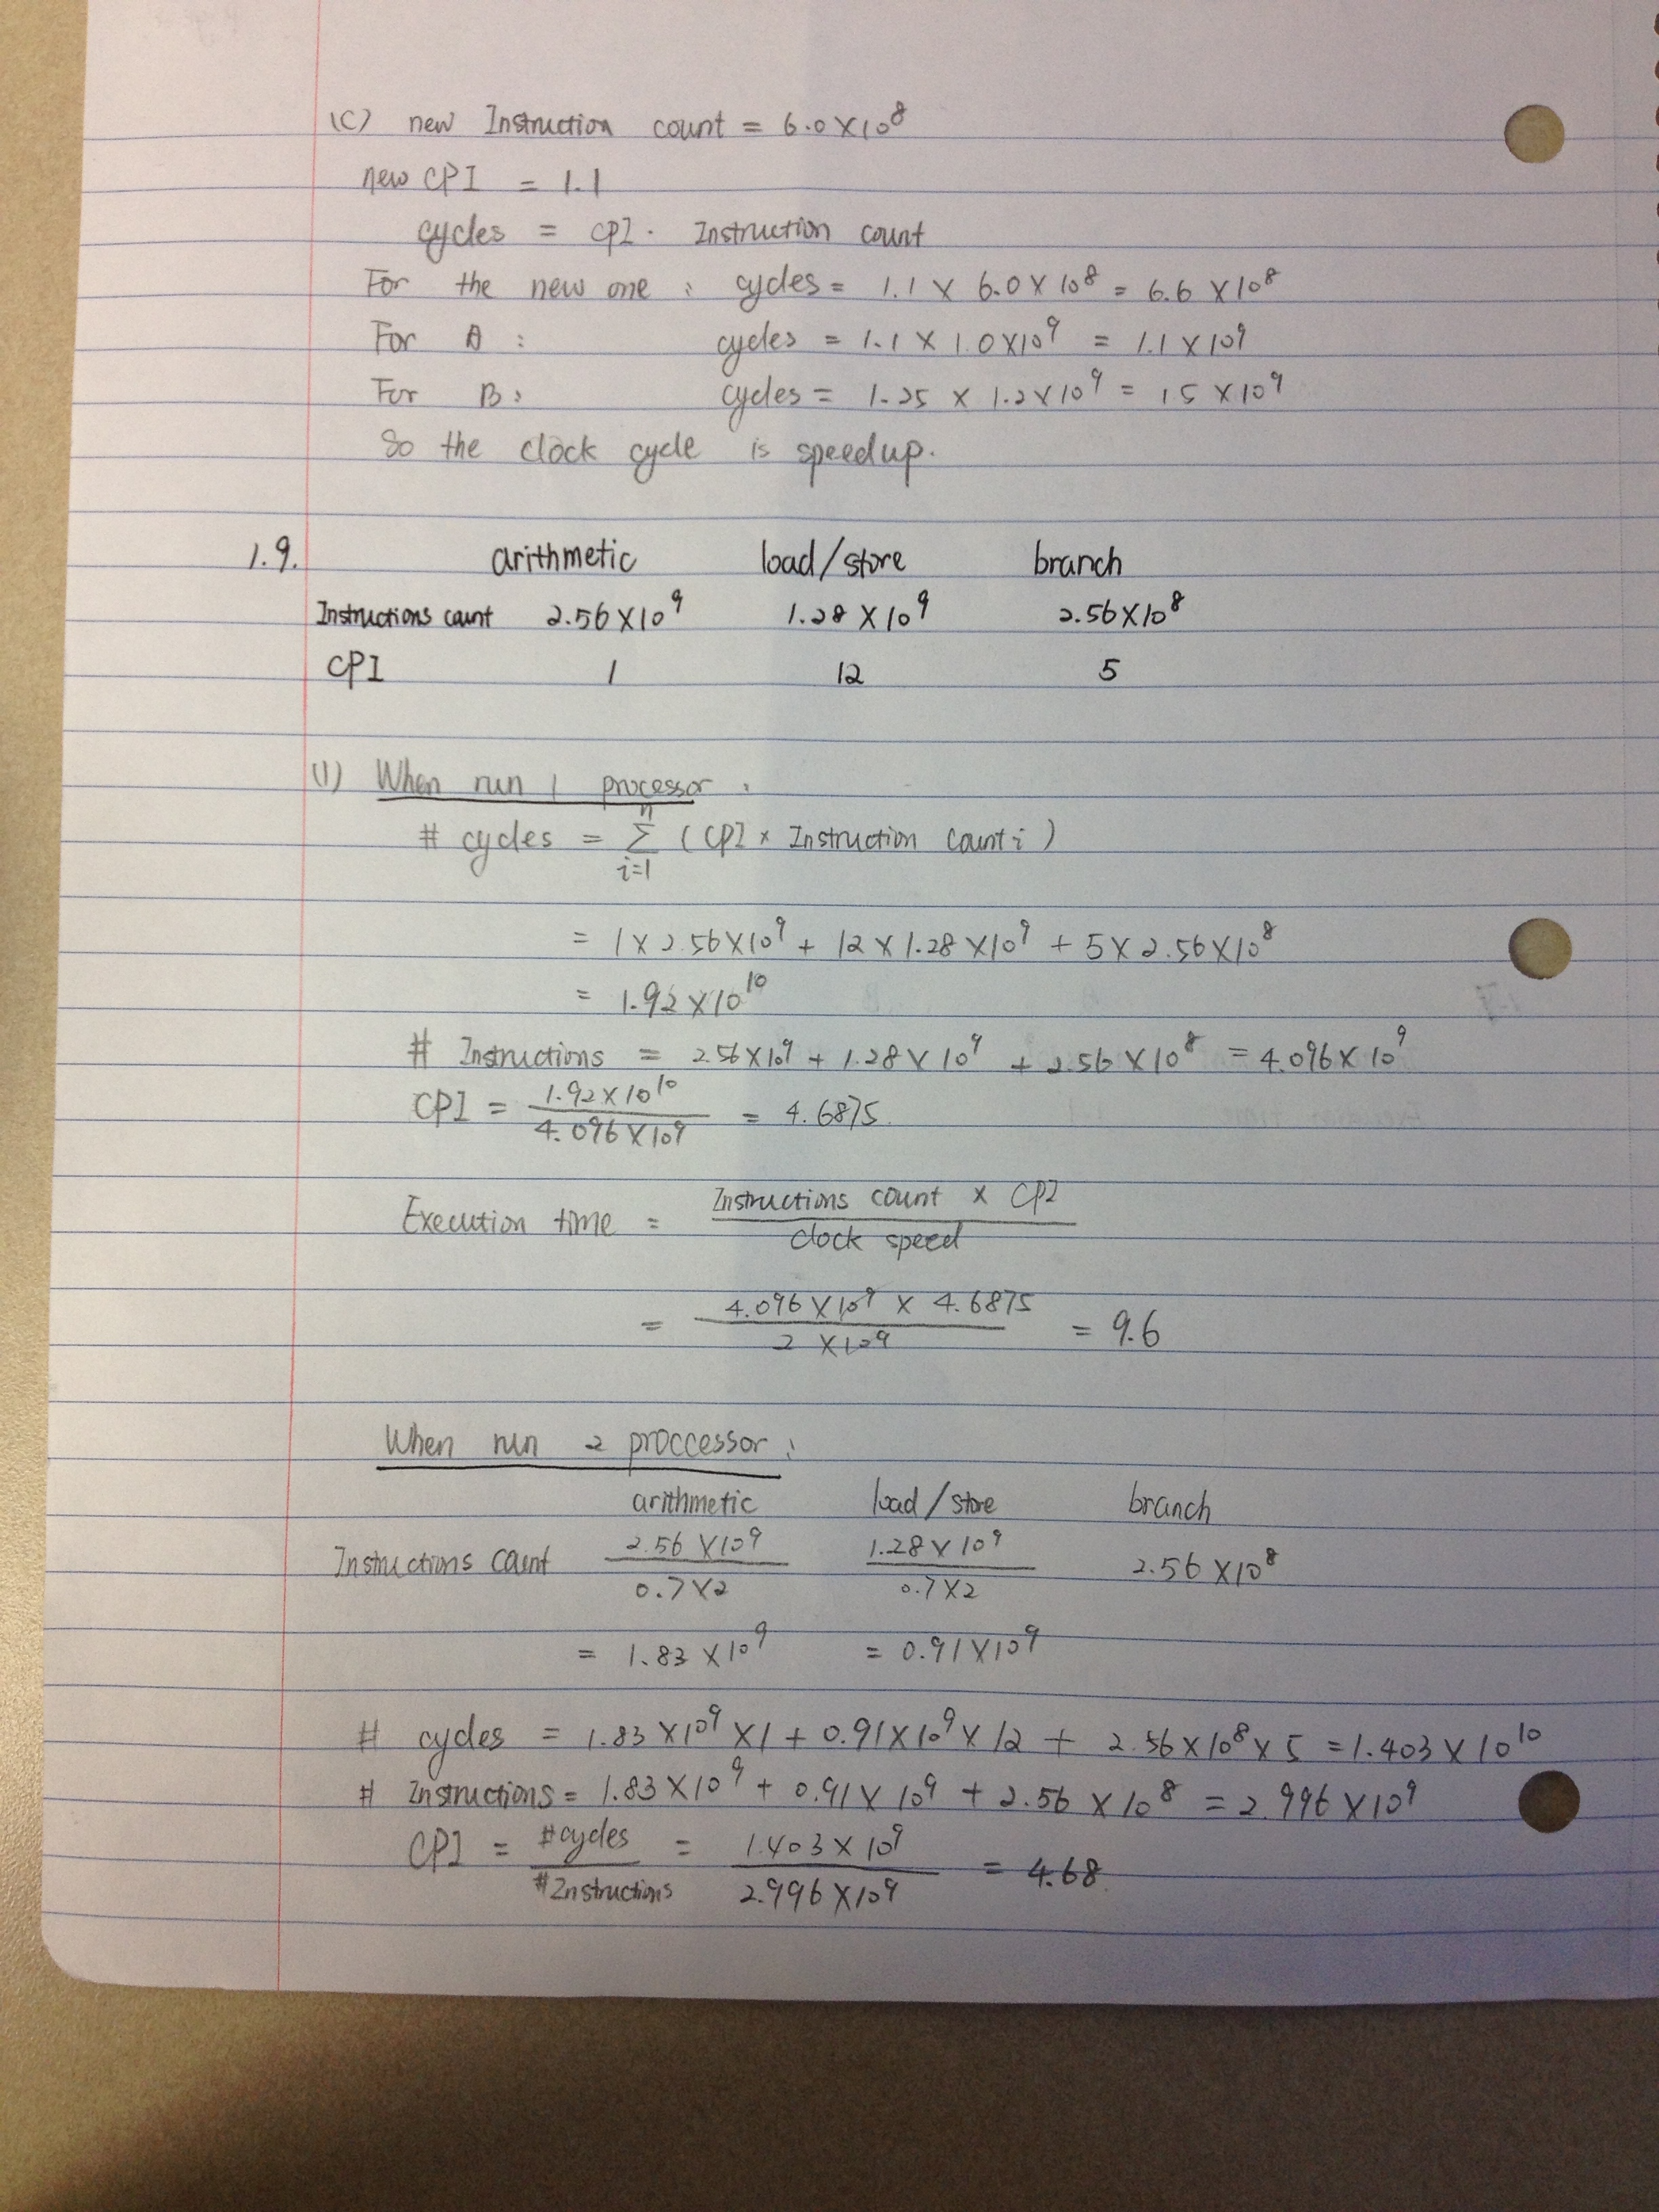 (C) new Instruction count = 6.0×10⁸
new CPI = 1.1
cycles = CPI · Instruction count
For the new one : cycles = 1.1 × 6.0 × 10⁸ = 6.6 × 10⁸
For A : cycles = 1.1 × 1.0×10⁹ = 1.1×10⁹
For B : cycles = 1.25 × 1.2×10⁹ = 15 ×10⁹
So the clock cycle is speedup.
1.9. arithmetic load/store branch
Instructions count 2.56×10⁹ 1.28×10⁹ 2.56×10⁸
CPI 1 12 5
(1) When run 1 processor :
# cycles = n∑i=1 (CPI × Instruction count i)
= 1×2.56×10⁹ + 12×1.28×10⁹ + 5×2.56×10⁸
= 1.92×10¹⁰
# Instructions = 2.56×10⁹ + 1.28×10⁹ + 2.56×10⁸ = 4.096×10⁹
CPI = 1.92×10¹⁰ / 4.096×10⁹ = 4.6875.
Execution time = Instructions count × CPI / clock speed
= 4.096×10⁹ × 4.6875 / 2×10⁹ = 9.6
When run 2 proccessor :
arithmetic load/store branch
Instructions count 2.56×10⁹ / 0.7×2 1.28×10⁹ / 0.7×2 2.56×10⁸
= 1.83×10⁹ = 0.91×10⁹
# cycles = 1.83×10⁹×1 + 0.91×10⁹×12 + 2.56×10⁸×5 = 1.403×10¹⁰
# Instructions = 1.83×10⁹ + 0.91×10⁹ + 2.56×10⁸ = 2.996×10⁹
CPI = #cycles / #Instructions = 1.403×10⁹ / 2.996×10⁹ = 4.68.